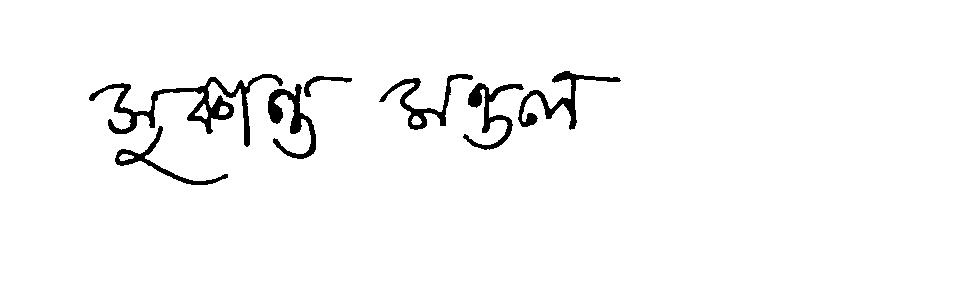 সুকান্ত মন্ডল